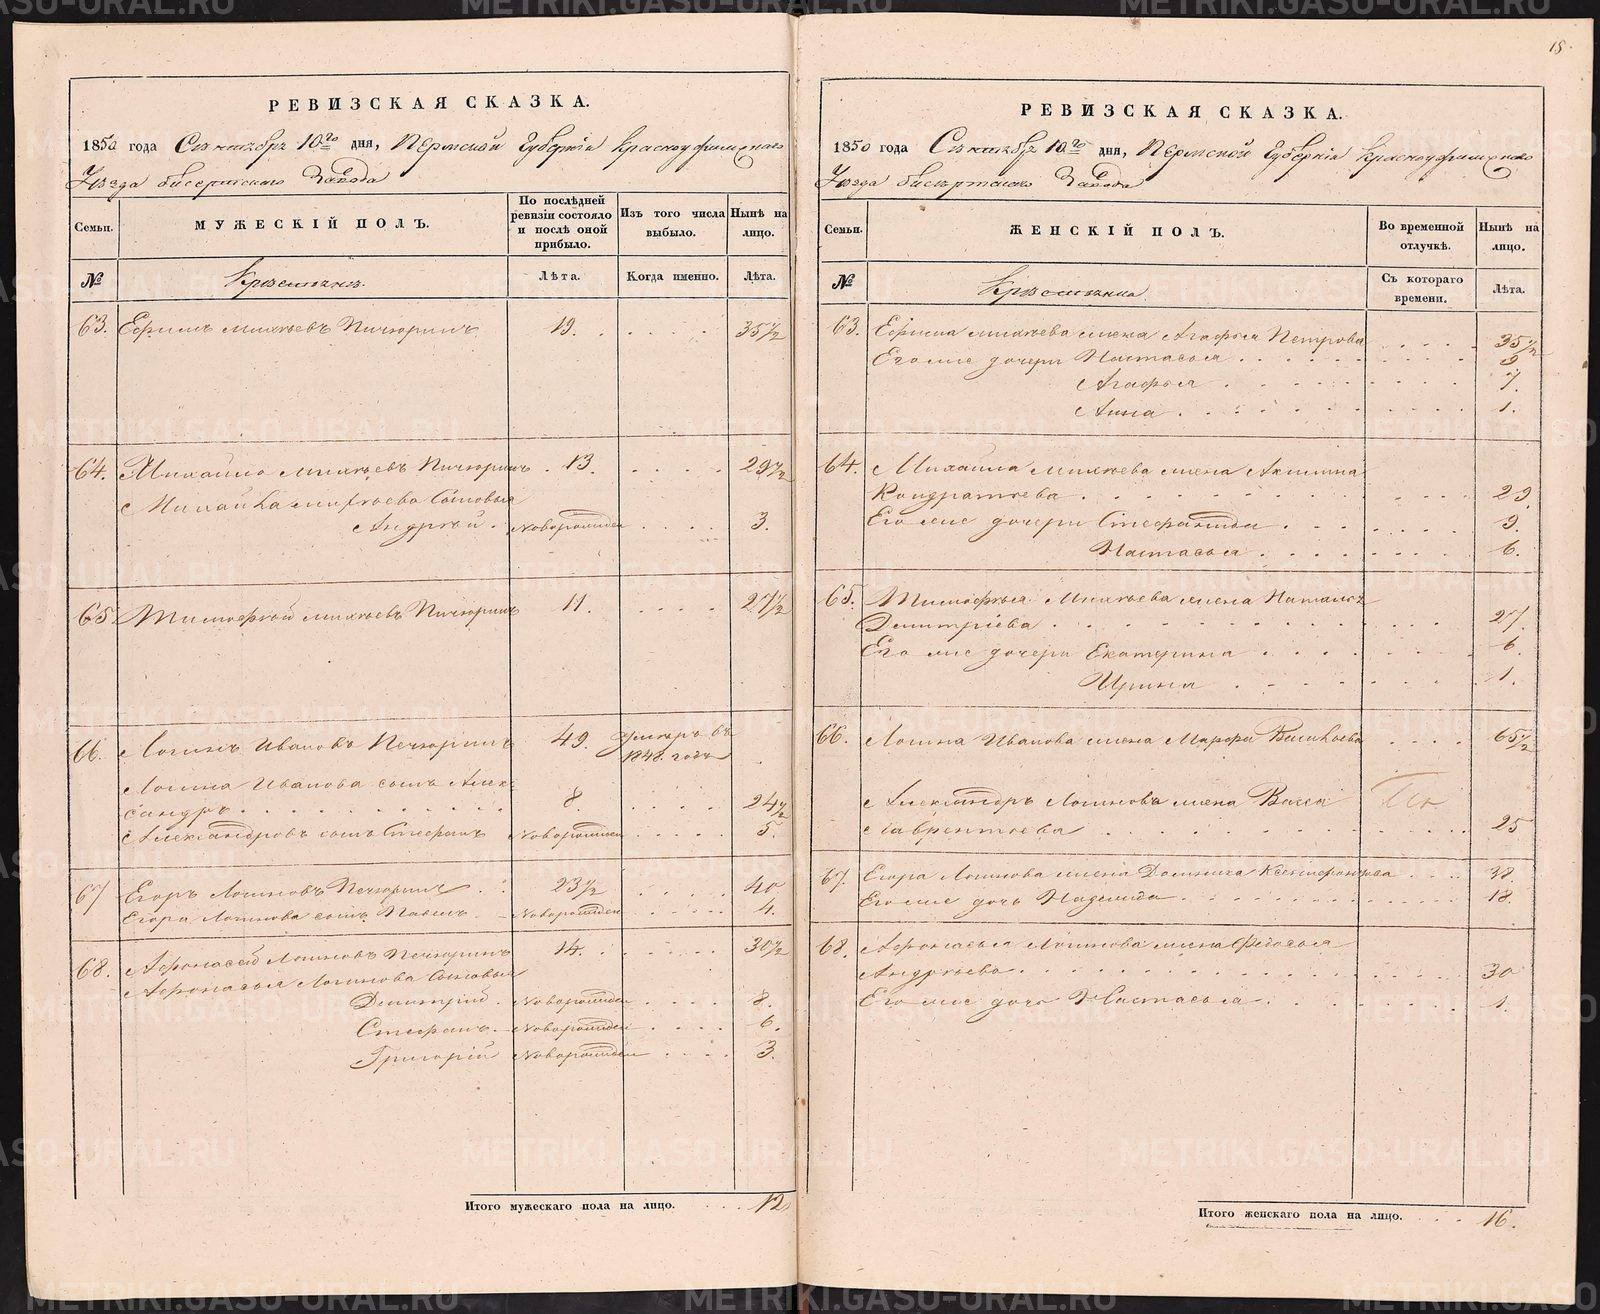 15.
РЕВИЗСКАЯ СКАЗКА.
1850 года Сентября 10го дня, Пермской Губернiи Красноуфимскаго
Уезда бисертскаго Завода
Семьи.
МУЖЕСКIЙ ПОЛЪ.
По послѣдней ревизiи состояло и послѣ оной прибыло.
Изъ того числа выбыло.
Нынѣ на лицо.
№
Крестьяне.
Лѣта.
Когда именно.
Лѣта.
63. Ефимъ Михѣевъ Пичюринъ 19. 35½
64. Михайло Михѣевъ Пичюринъ 13. 29½
Михайла Михѣева Сыновья
Андрѣй. Новорожден 3.
65 Тимофѣй Михѣевъ Пичюринъ 11. 27½
66. Логинъ Ивановъ Печюринъ 49. Умеръ въ
1848. годѣ
Логина Иванова сынъ Алек-
сандръ 8. 24½
Александровъ сынъ Стефанъ Новорожден 5.
67 Егоръ Логиновъ Печюринъ 23½ 40
Егора Логинова сынъ Павелъ Новорожден 4.
68. Афонасей Логиновъ Печюринъ 14. 30½
Афонасья Логинова Сыновья
Дмитрiй. Новорожден 8.
Стефанъ. Новорожден 6.
Григорiй Новорожден 3.
Итого мужескаго пола на лицо. 12
РЕВИЗСКАЯ СКАЗКА.
1850 года Сентября 10го дня, Пермской Губернiи Красноуфимскаго
Уезда бисертскаго Завода
Семьи.
ЖЕНСКIЙ ПОЛЪ.
Во временной отлучкѣ.
Нынѣ на лицо.
№
Крестьянка.
Съ котораго времени.
Лѣта.
63. Ефима Михѣева жена Агафья Петрова 35½
Его же дочери Настасья 9
Агафья 7.
Анна 1.
64. Михайла Михѣева жена Акилина
Кондратьева 29.
Его же дочери Стефанида 9.
Настасья 6.
65. Тимофѣя Михѣева жена Наталья
Дмитрiева 27.
Его же дочери Екатерина 6.
Ирина 1.
66. Логина Иванова жена Марфа Васильева 65½
Александръ Логинова жена Васса
Лаврентьева 25
67. Егора Логинова жена Домника Ксенофонтова 38
Его же дочь Надежида 18.
68. Афонасья Логинова жена Федосья
Андрѣева 30
Его же дочь Настасья 1.
Итого женскаго пола на лицо. 16.
METRIKI.GASO-URAL.RU